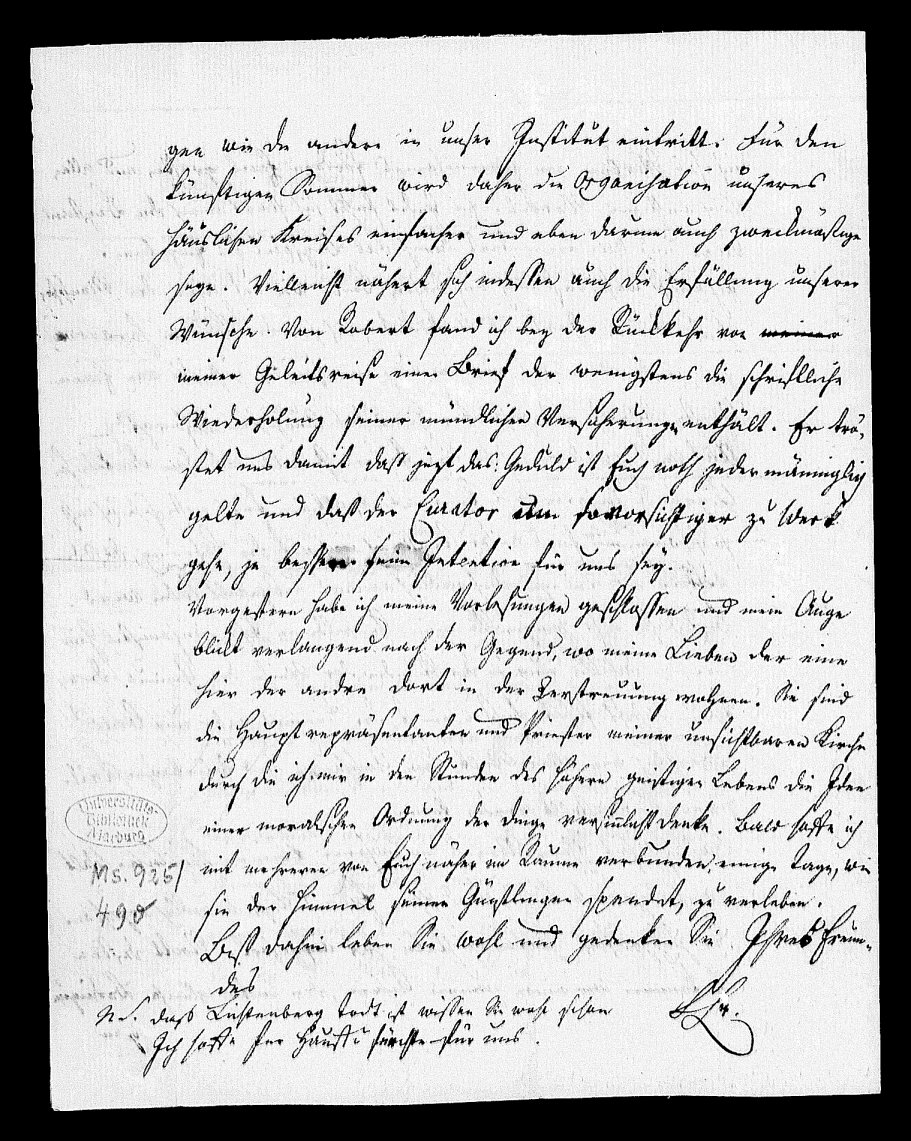 gen wie die andere in unser Institut eintritt. Für den
künftigen Sommer wird daher die Organisation unseres
häuslichen Kreises einfacher und eben darum auch zweckmäsiger
seyn. Vielleicht nähert sich indessen auch die Erfüllung unserer
Wünsche. Von Robert fand ich bey der Rückkehr von meiner
meiner Geleitsreise einen Brief der wenigstens die schriftliche
Wiederholung seiner mündlichen Versicherungen enthält. Er trö-
stet uns damit daß jezt das: Geduld ist Euch noth jedermänniglich
gelte und daß der Curator um so vorsichtiger zu Werk
gehe, je besser seine Intention für uns sey.
Vorgestern habe ich meine Vorlesungen geschlossen und mein Auge
blickt verlangend nach der Gegend, wo meine Lieben der eine
hier der andre dort in der Zerstreuung wohnen. Sie sind
die Hauptrepräsentanten und Priester meiner unsichtbaren Kirche
durch die ich mir in den Stunden des höhern geistigen Lebens die Idee
einer moralschen Ordnung der Dinge versinnlicht denke. Bald hoffe ich
mit mehreren von Euch näher im Raume verbunden, einige Tage, wie
sie der Himmel seinen Günstlingen spendet, zu verleben.
Bis dahin leben Sie wohl und gedenken Sie Ihres Freun-
des
N.S. daß Lichtenberg todt ist wissen Sie wohl schon
Ich hoffe für fürchte für uns.
Universitäts-
Bibliothek
Marburg
Ms. 925/
490